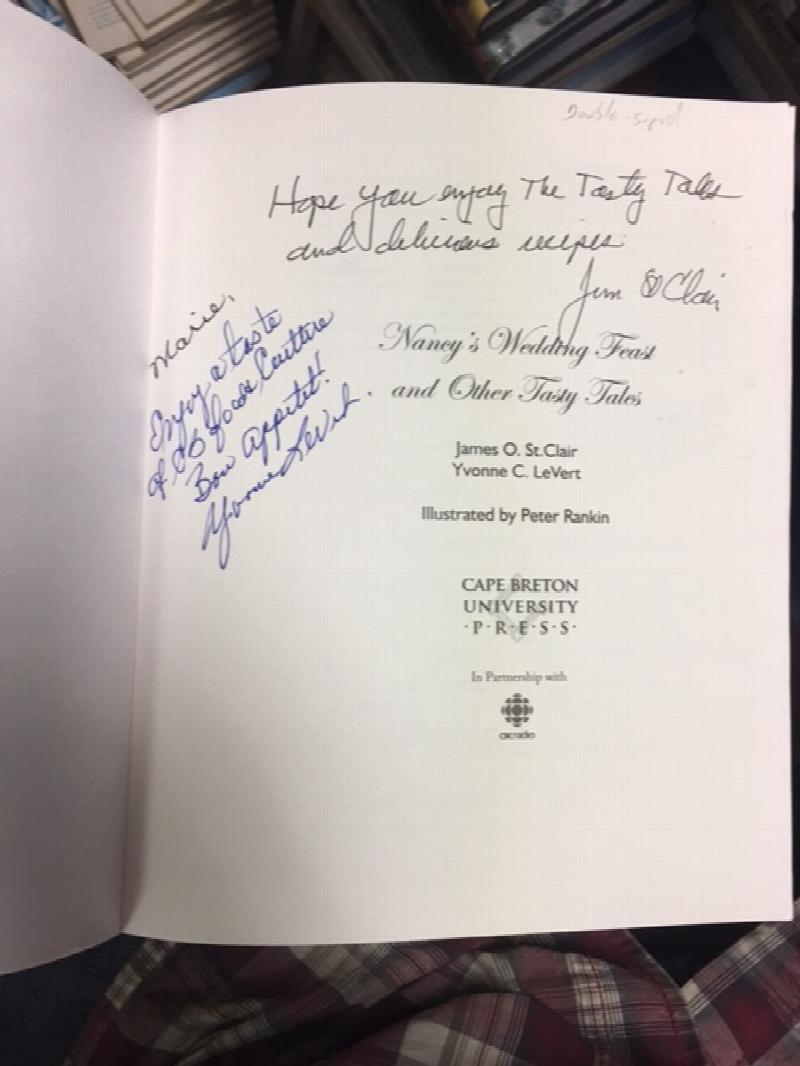 Double-signed
Hope you enjoy The Tasty Tales
and delicious recipes.
Jim St Clair
Marie,
Enjoy a taste
of CB food & Culture
Bon Appetit!
Yvonne LeVert.
Nancy's Wedding Feast
and Other Tasty Tales
James O. St.Clair
Yvonne C. LeVert
Illustrated by Peter Rankin
CAPE BRETON
UNIVERSITY
·P·R·E·S·S·
In Partnership with
cbcradio